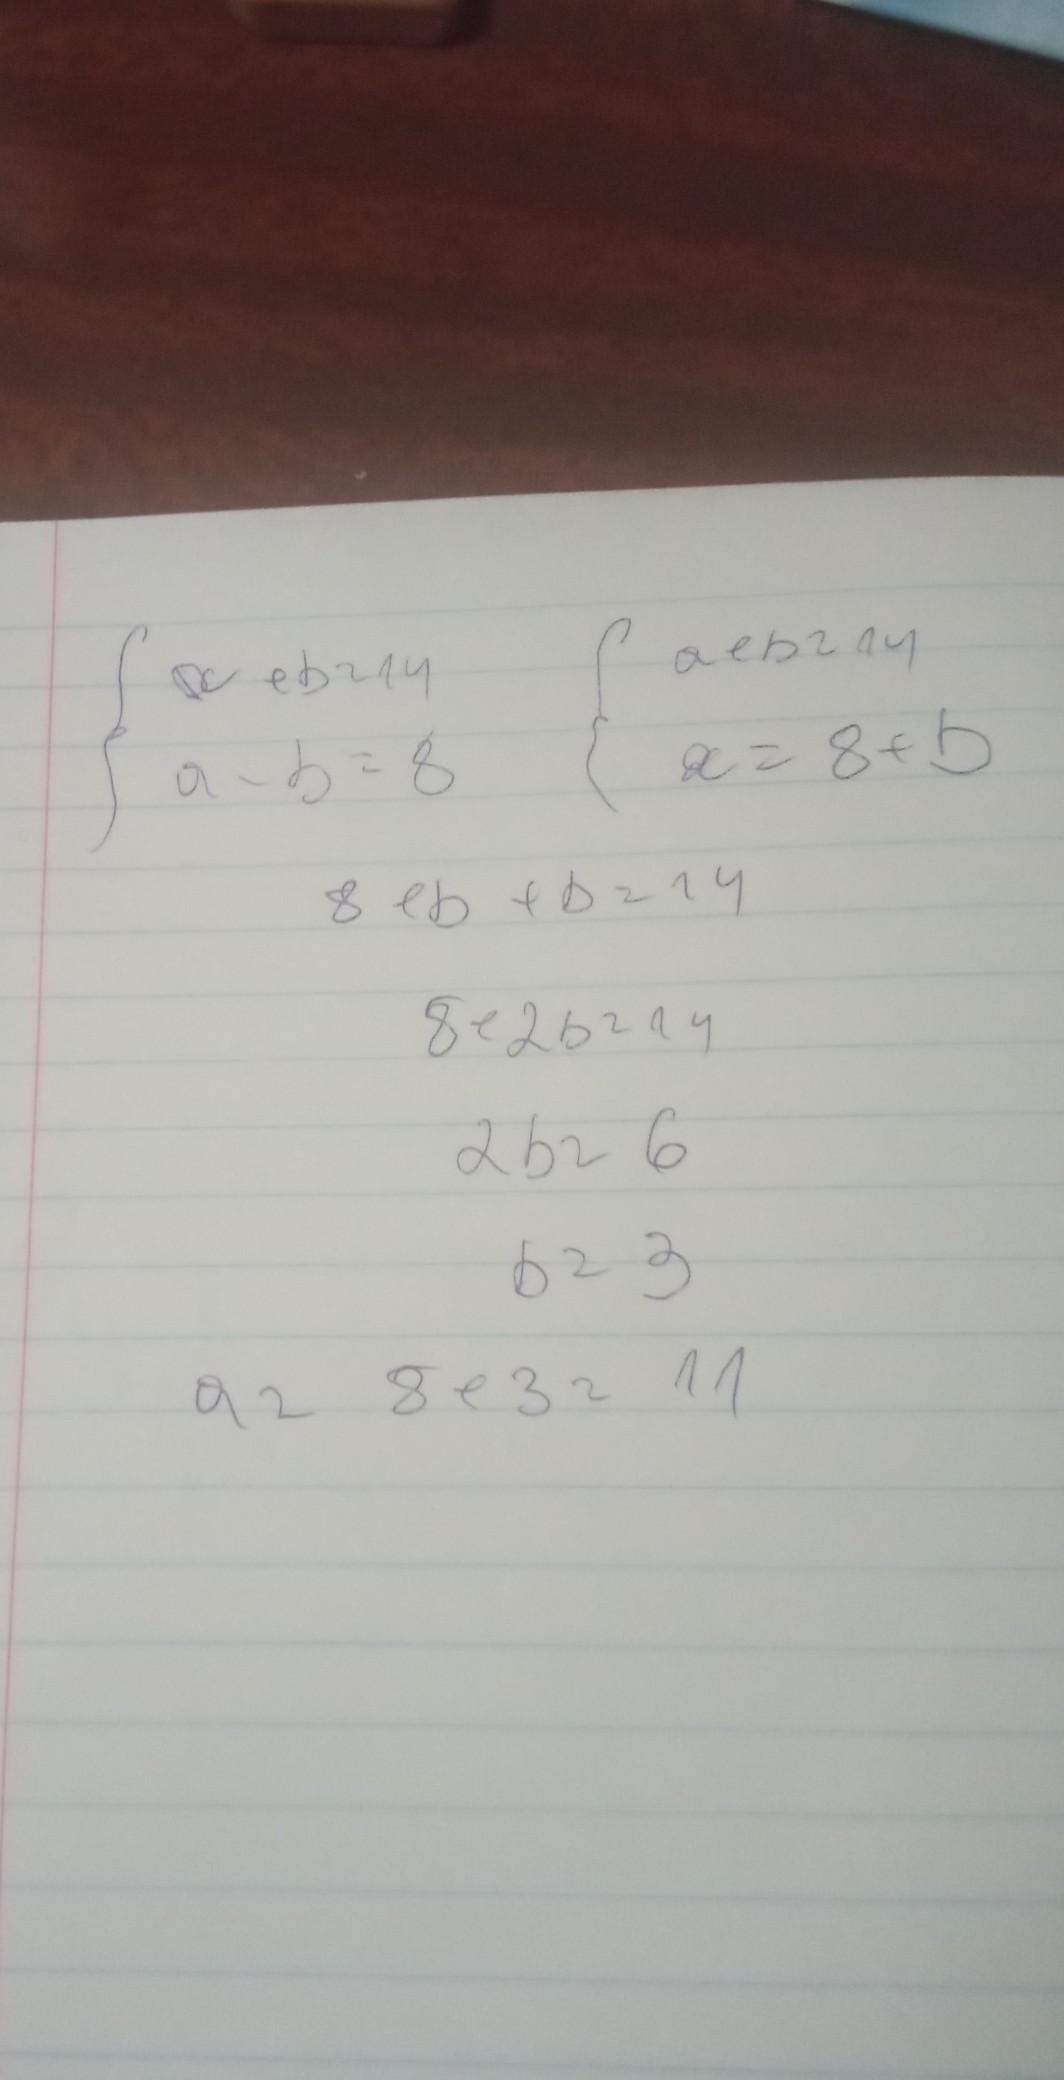 a + b = 14 a + b = 14
a - b = 8 a = 8 + b
8 + b + b = 14
8 + 2b = 14
2b = 6
b = 3
a = 8 + 3 = 11